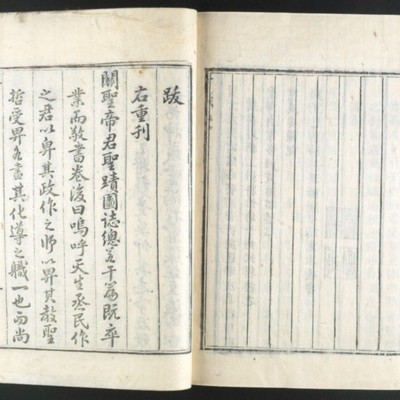 跋
右重刊
關聖帝君聖蹟圖誌總若干篇既卒
業而敬書卷後曰嗚呼天生烝民作
之君以畀其政作之師以畀其教聖
哲受畀各盡其化導之職一也而尚